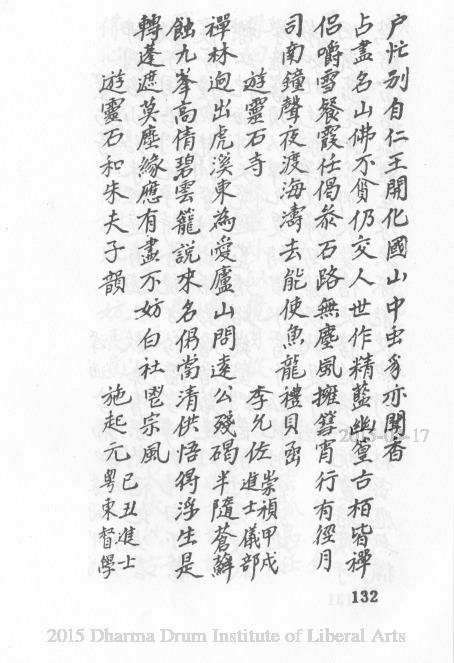 户忙別自仁王開化國山中虫豸亦聞香
占盡名山佛不貪仍交人世作精藍幽篁古栢皆禪
侶嚼雪餐霞任偈叅石路無塵風擁篲宵行有徑月
司南鐘聲夜渡海濤去能使魚龍禮貝函
遊靈石寺 李允佐 崇禎甲戌進士儀部
禪林迥出虎溪東為愛廬山問遠公殘碣半隨蒼蘚
蝕九峯高倩碧雲籠說來名偈當清供悟得浮生是
轉蓬遮莫塵緣應有盡不妨白社鬯宗風
遊靈石和朱夫子韻 施起元 己丑進士粵東督學
132
2015-03-17
2015 Dharma Drum Institute of Liberal Arts